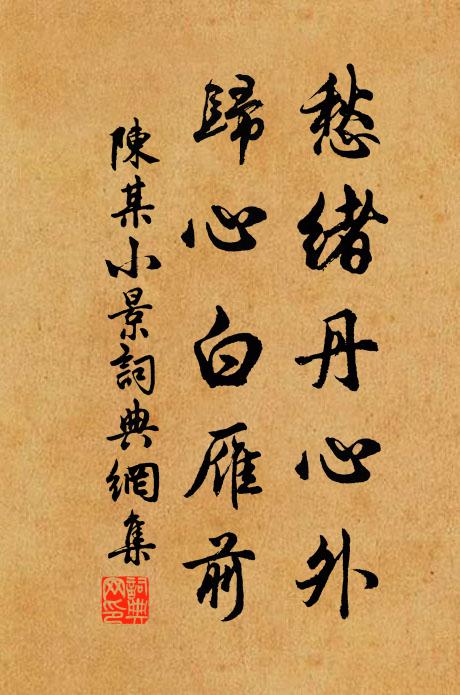 愁緒丹心外
歸心白雁前
陳某小景詞典網集
詞典網印